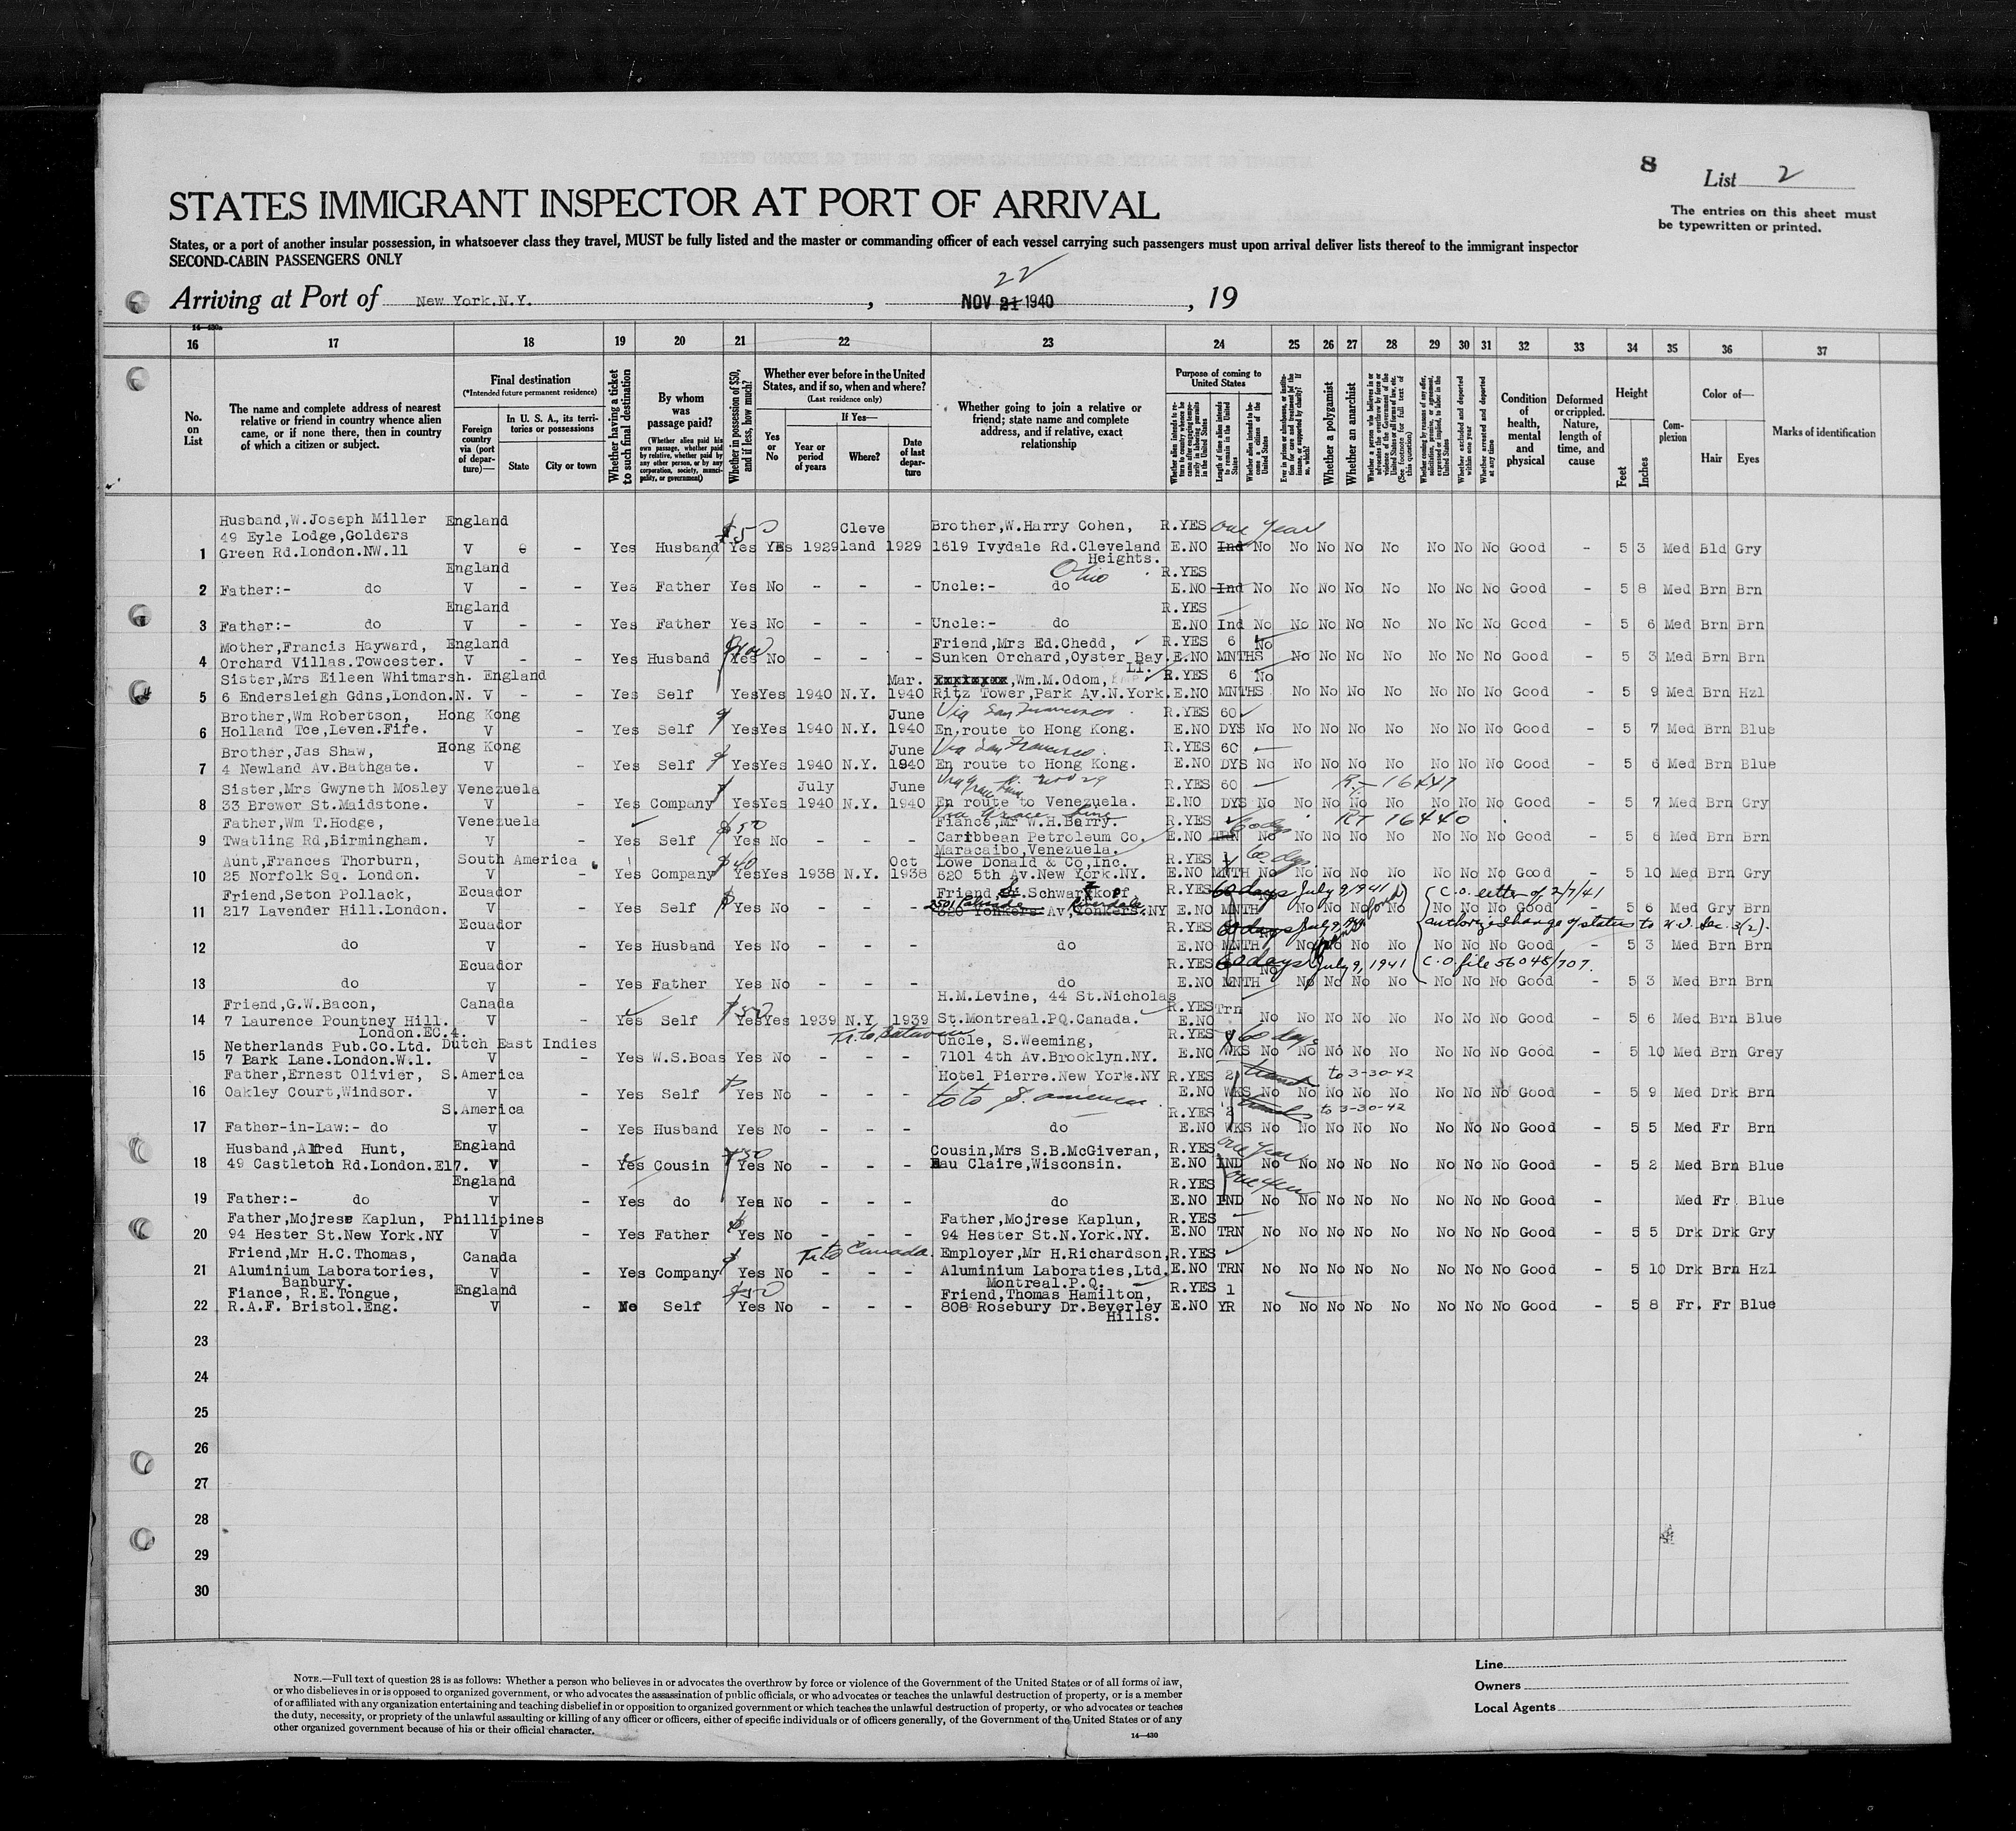 8
List 2
The entries on this sheet must
be typewritten or printed.
STATES IMMIGRANT INSPECTOR AT PORT OF ARRIVAL
States, or a port of another insular possession, in whatsoever class they travel, MUST be fully listed and the master or commanding officer of each vessel carrying such passengers must upon arrival deliver lists thereof to the immigrant inspector
SECOND-CABIN PASSENGERS ONLY
22
Arriving at Port of New York.N.Y. , NOV 21 1940 , 19
14—430a
16 17 18 19 20 21 22 23 24 25 26 27 28 29 30 31 32 33 34 35 36 37
No. on List
The name and complete address of nearest relative or friend in country whence alien came, or if none there, then in country of which a citizen or subject.
Final destination
(*Intended future permanent residence)
Foreign country via (port of departure)—
In U. S. A., its territories or possessions
State
City or town
Whether having a ticket to such final destination
By whom was passage paid?
(Whether alien paid his own passage, whether paid by relative, whether paid by any other person, or by any corporation, society, municipality, or government)
Whether in possession of $50, and if less, how much?
Whether ever before in the United States, and if so, when and where?
(Last residence only)
Yes or No
If Yes—
Year or period of years
Where?
Date of last departure
Whether going to join a relative or friend; state name and complete address, and if relative, exact relationship
Purpose of coming to United States
Length of time alien intends to remain in the United States
Whether alien intends to become a citizen of the United States
Whether a polygamist
Whether an anarchist
Whether excluded and deported within one year
Whether arrested and deported at any time
Condition of health, mental and physical
Deformed or crippled. Nature, length of time, and cause
Height
Feet
Inches
Complexion
Color of—
Hair
Eyes
Marks of identification
Husband,W.Joseph Miller England $50 Cleve Brother,W.Harry Cohen, R.YES one year
49 Eyle Lodge,Golders
1 Green Rd.London.NW.11 V - Yes Husband Yes YEs 1929 land 1929 1619 Ivydale Rd.Cleveland E.NO Ind No No No No No No No No Good - 5 3 Med Bld Gry
Heights.
England Ohio R.YES
2 Father:- do V - - Yes Father Yes No - - - Uncle:- do E.NO Ind No No No No No No No No Good - 5 8 Med Brn Brn
England R.YES
3 Father:- do V - - Yes Father Yes No - - - Uncle:- do E.NO Ind No No No No No No No No Good - 5 6 Med Brn Brn
Mother,Francis Hayward, England Friend,Mrs Ed.Chedd, R.YES 6 No
4 Orchard Villas.Towcester. V - - Yes Husband Yes No - - - Sunken Orchard,Oyster Bay. E.NO MNTHS No No No No No No No Good - 5 3 Med Brn Brn
LI.
Sister,Mrs Eileen Whitmarsh. England Mar. ,Wm.M.Odom, R.YES 6 No
5 6 Endersleigh Gdns,London.N. V - - Yes Self Yes Yes 1940 N.Y. 1940 Ritz Tower,Park Av.N.York. E.NO MNTHS No No No No No No No Good - 5 9 Med Brn Hzl
Brother,Wm Robertson, Hong Kong June Via San Francisco R.YES 60
6 Holland Tce,Leven.Fife. V - Yes Self Yes Yes 1940 N.Y. 1940 En,route to Hong Kong. E.NO DYS No No No No No No No No Good - 5 7 Med Brn Blue
Brother,Jas Shaw, Hong Kong June Via San Francisco. R.YES 60
7 4 Newland Av.Bathgate. V - Yes Self Yes Yes 1940 N.Y. 1940 En route to Hong Kong. E.NO DYS No No No No No No No No Good - 5 6 Med Brn Blue
Sister,Mrs Gwyneth Mosley Venezuela July June R.YES 60 R.- 16447
8 33 Brewer St.Maidstone. V - Yes Company Yes Yes 1940 N.Y. 1940 En route to Venezuela. E.NO DYS No No No No No No No No Good - 5 7 Med Brn Gry
Via Grace Line
Father,Wm T.Hodge, Venezuela $50 Fiance,Mr W.H.Berry. R.YES 60 dys RT 16440
9 Twatling Rd,Birmingham. V - Yes Self Yes No - - - Caribbean Petroleum Co. E.NO TRN No No No No No No No No Good - 5 6 Med Brn Brn
Maracaibo,Venezuela.
Aunt,Frances Thorburn, South America $40 Oct Lowe Donald & Co,Inc. R.YES 1 60 dys.
10 25 Norfolk Sq. London. V - Yes Company Yes Yes 1938 N.Y. 1938 620 5th Av.New York.NY. E.NO MNTH No No No No No No No No Good - 5 10 Med Brn Gry
Friend,Seton Pollack, Ecuador Friend .Schwartkopf R.YES 60 days July 9, 1941 C.O. letter of 2/7/41
2501 Palisade Riverdale
11 217 Lavender Hill.London. V - Yes Self Yes No - - - 620 Yonkers Av,Yonkers.NY E.NO MNTH No No No No No No No Good - 5 6 Med Gry Brn
Ecuador R.YES 60 days July 9, 1941 authorize change of status to Sec. 3(2).
12 do V - Yes Husband Yes No - - - do E.NO MNTH No No No No No No No Good - 5 3 Med Brn Brn
Ecuador R.YES 60 days July 9, 1941 C.O. file 56048/707.
13 do V - Yes Father Yes No - - - do E.NO MNTH No No No No No No No Good - 5 3 Med Brn Brn
Friend,G.W.Bacon, Canada $50 H.M.Levine, 44 St.Nicholas R.YES Trn
14 7 Laurence Pountney Hill. V - Yes Self Yes Yes 1939 N.Y 1939 St.Montreal.PQ.Canada. E.NO No No No No No No No No Good - 5 6 Med Brn Blue
London.EC.4.
Netherlands Pub.Co.Ltd. Dutch East Indies Tr. to Batavia Uncle, S.Weeming, R.YES 60 days
15 7 Park Lane.London.W.1. V - Yes W.S.Boas Yes No - - - 7101 4th Av.Brooklyn.NY. E.NO WKS No No No No No No No No Good - 5 10 Med Brn Grey
Father,Ernest Olivier, S.America Hotel Pierre.New York.NY R.YES 2 transit to 3-30-42
16 Oakley Court,Windsor. V - Yes Self Yes No - - - to to S. America. E.NO WKS No No No No No No No No Good - 5 9 Med Drk Brn
S.America R.YES 2 transit to 3-30-42
17 Father-in-Law:- do V - Yes Husband Yes No - - - do E.NO WKS No No No No No No No No Good - 5 5 Med Fr Brn
Husband,Alfred Hunt, England $50 Cousin,Mrs S.B.McGiveran, R.YES one year
18 49 Castleton Rd.London.E17. V - Yes Cousin Yes No - - - Eau Claire,Wisconsin. E.NO IND No No No No No No No No Good - 5 2 Med Brn Blue
England R.YES one year
19 Father:- do V - Yes do Yes No - - - do E.NO IND No No No No No No No No Good - Med Fr. Blue
Father,Mojrese Kaplun, Phillipines Father,Mojrese Kaplun, R.YES
20 94 Hester St.New York.NY V - Yes Father Yes No - - - 94 Hester St.N.York.NY. E.NO TRN No No No No No No No No Good - 5 5 Drk Drk Gry
Friend,Mr H.C.Thomas, Canada Tr. to Canada. Employer,Mr H.Richardson, R.YES
21 Aluminium Laboratories, V - Yes Company Yes No - - - Aluminium Laboraties,Ltd. E.NO TRN No No No No No No No No Good - 5 10 Drk Brn Hzl
Banbury. Montreal.P.Q.
Fiance, R.E.Tongue, England $50 Friend,Thomas Hamilton, R.YES 1
22 R.A.F. Bristol.Eng. V - No Self Yes No - - - 808 Rosebury Dr.Beverley E.NO YR No No No No No No No No Good - 5 8 Fr. Fr Blue
Hills.
23
24
25
26
27
28
29
30
NOTE.—Full text of question 28 is as follows: Whether a person who believes in or advocates the overthrow by force or violence of the Government of the United States or of all forms of law,
or who disbelieves in or is opposed to organized government, or who advocates the assassination of public officials, or who advocates or teaches the unlawful destruction of property, or is a member
of or affiliated with any organization entertaining and teaching disbelief in or opposition to organized government or which teaches the unlawful destruction of property, or who advocates or teaches
the duty, necessity, or propriety of the unlawful assaulting or killing of any officer or officers, either of specific individuals or of officers generally, of the Government of the United States or of any
other organized government because of his or their official character.
14—430
Line
Owners
Local Agents